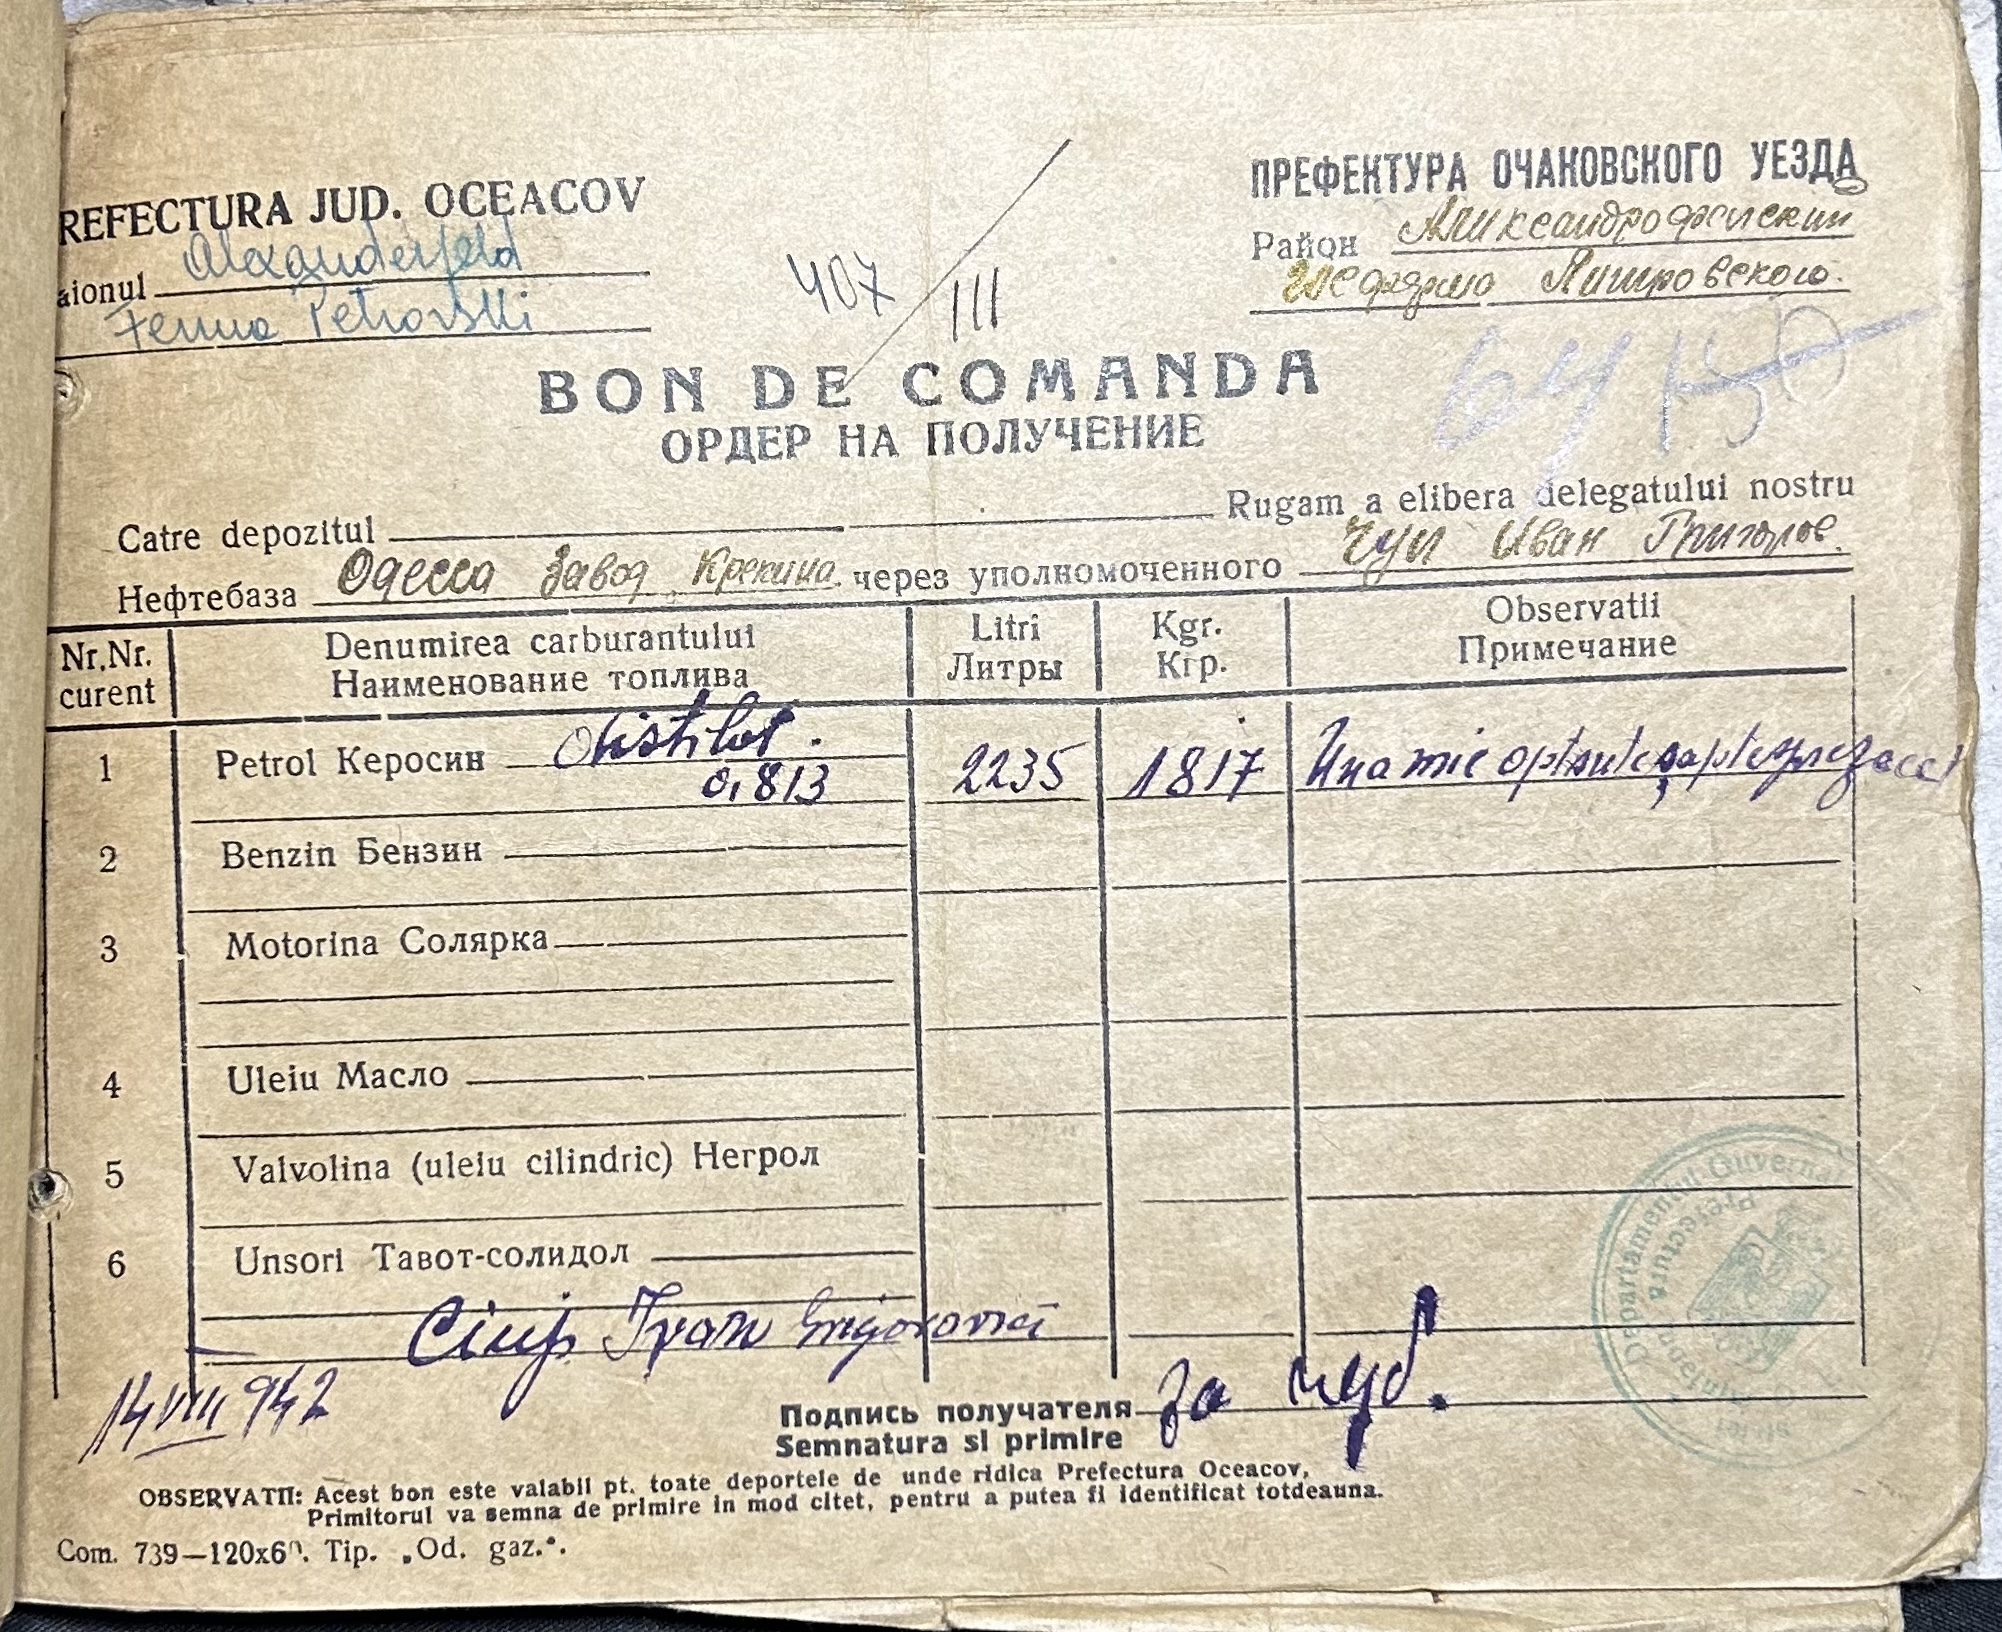 REFECTURA JUD. OCEACOV
aionul Alexanderfeld
Ferma Petrovski
407/III
ПРЕФЕКТУРА ОЧАКОВСКОГО УЕЗДА
Район
BON DE COMANDA
ОРДЕР НА ПОЛУЧЕНИЕ
Catre depozitul Rugam a elibera delegatului nostru
Нефтебаза Одесса Завод Крекина через уполномоченного Чуп Иван Григоров.
Nr.Nr. curent
Denumirea carburantului
Наименование топлива
Litri
Литры
Kgr.
Кгр.
Observatii
Примечание
1 Petrol Керосин distilat. 2235 1817 Una mie optsute șaptesprezece
0,813
2 Benzin Бензин
3 Motorina Солярка
4 Uleiu Масло
5 Valvolina (uleiu cilindric) Негрол
6 Unsori Тавот-солидол
Ciup Ivan Grigorovici
14 VIII 942
Подпись получателя За чуб.
Semnatura si primire
OBSERVATII: Acest bon este valabil pt. toate deportele de unde ridica Prefectura Oceacov,
Primitorul va semna de primire in mod citet, pentru a putea fi identificat totdeauna.
Com. 739—120x60. Tip. „Od. gaz.“.
Departamentul Guvernat
Prefectura